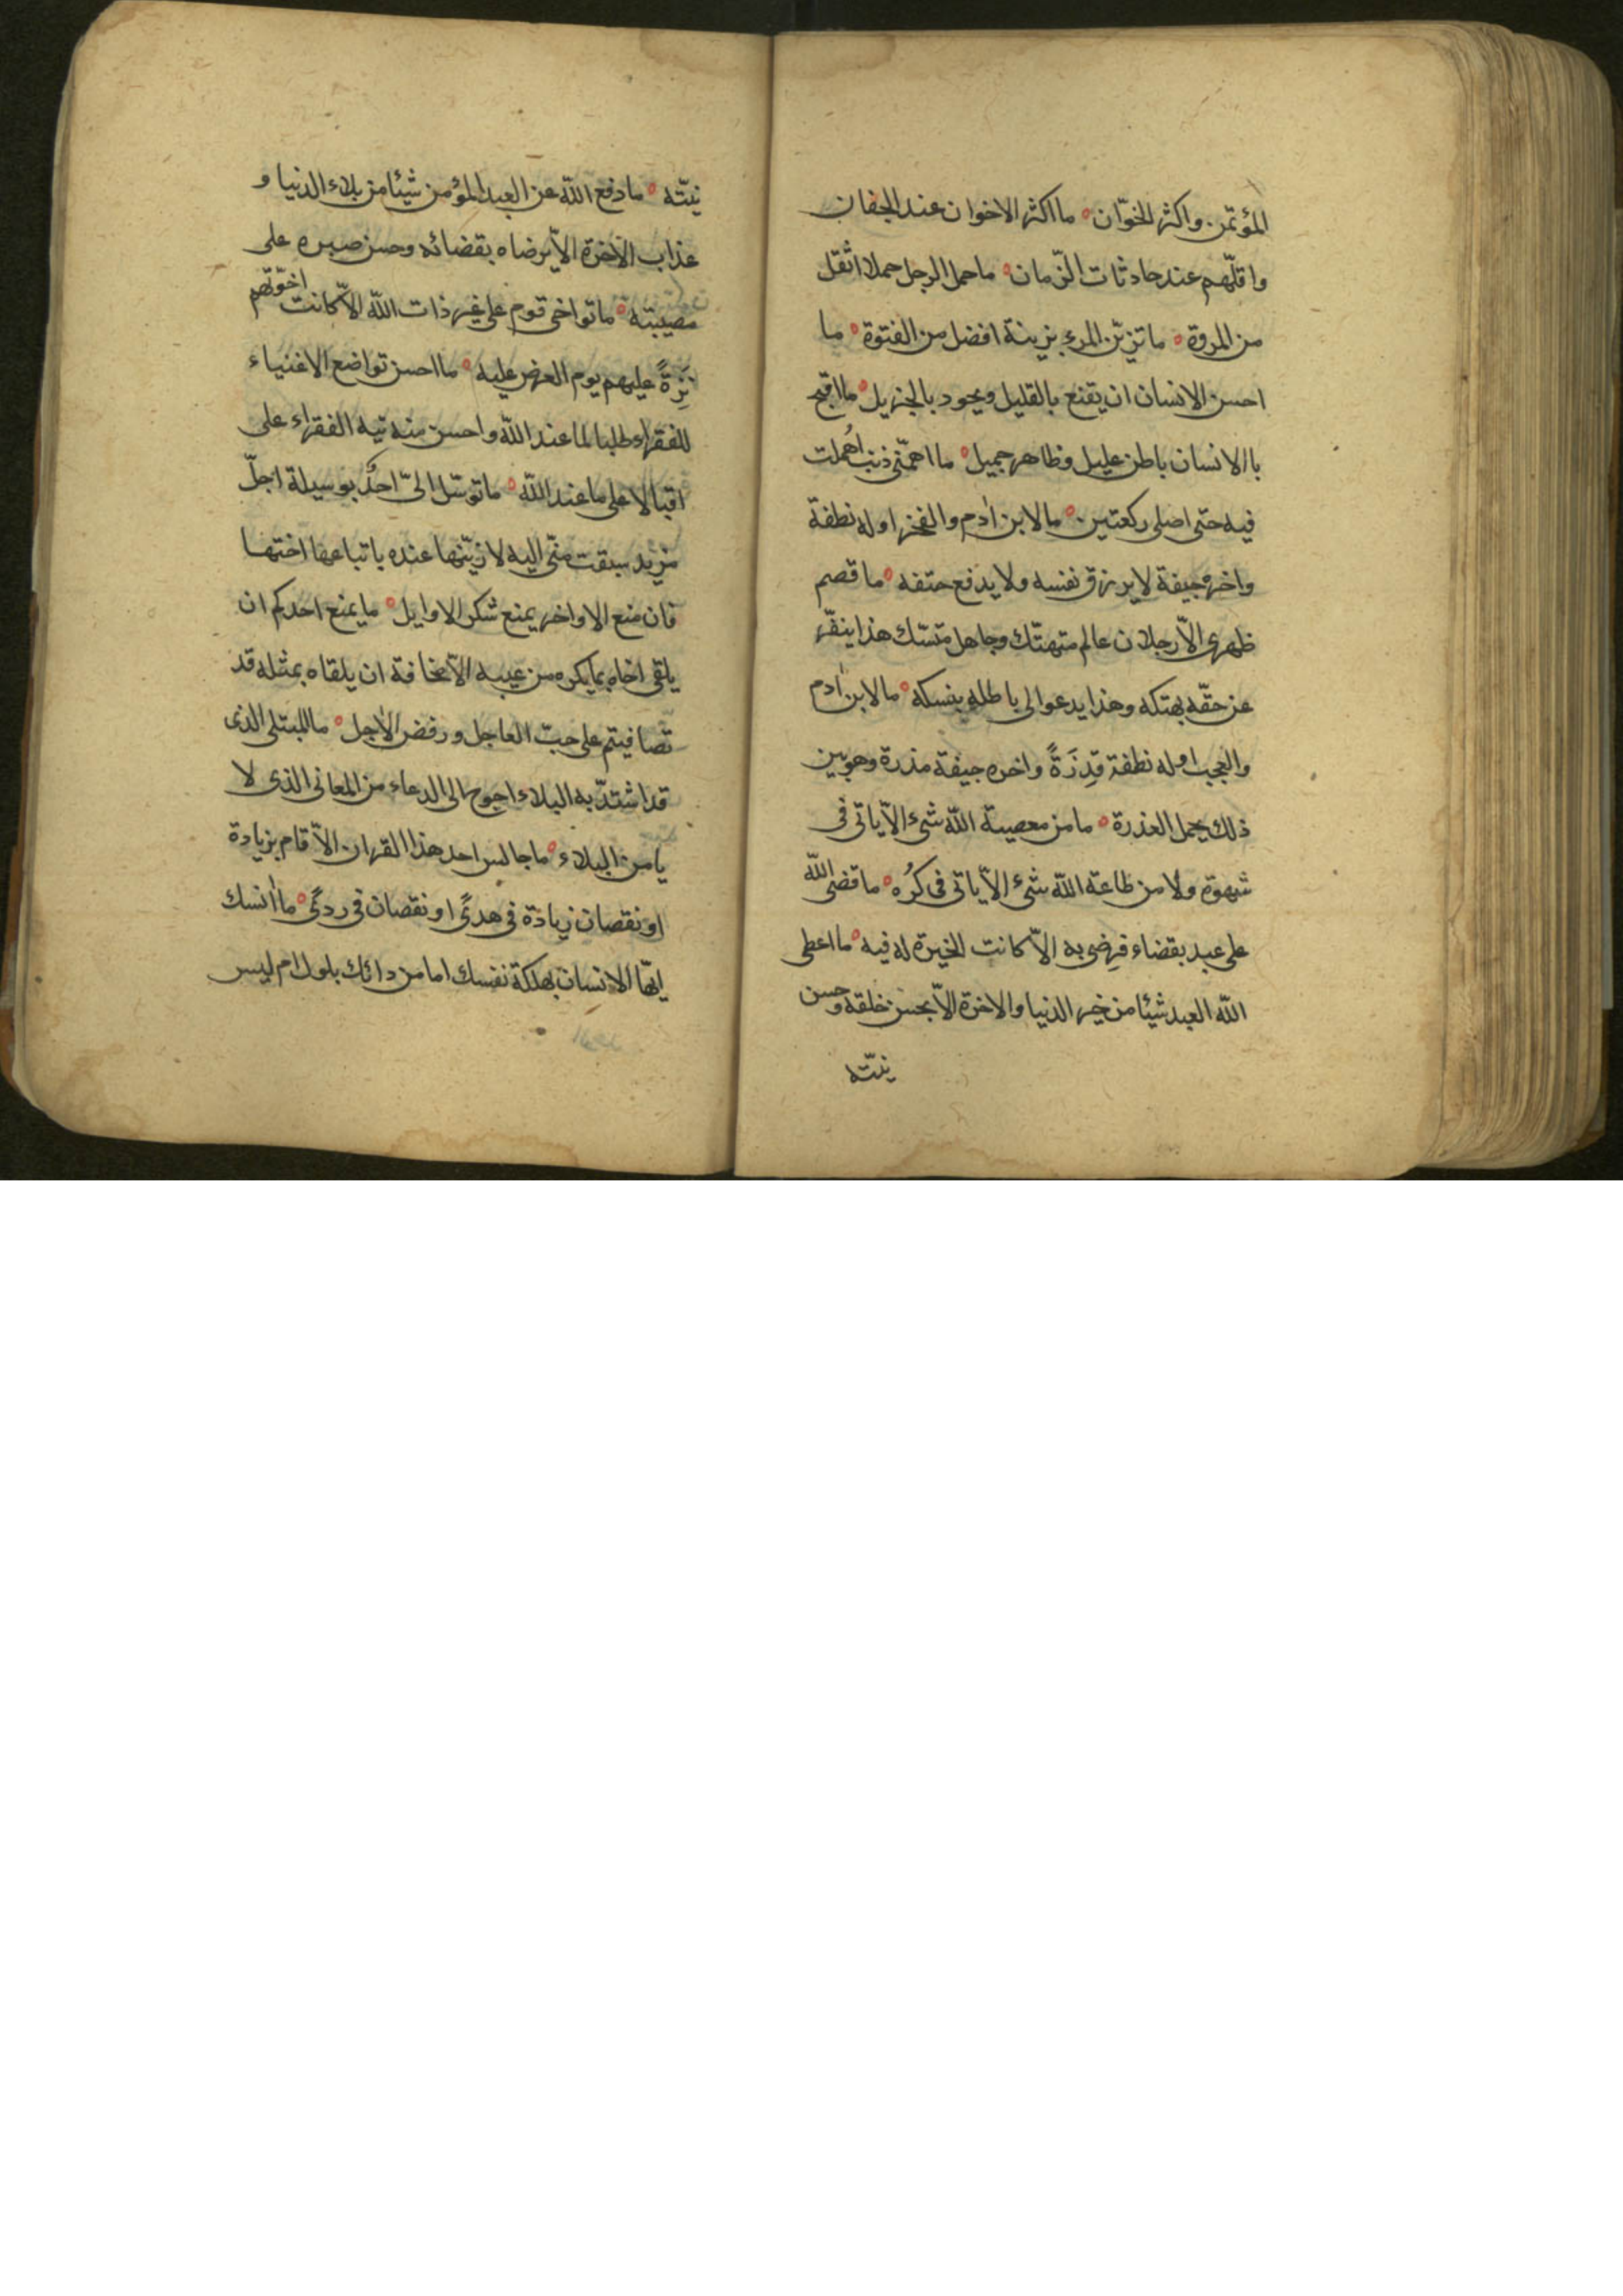 المؤتمن واكثر الخوّان ما اكثر الاخوان عند الجفان
واقلّهم عند حادثات الزّمان ما حمل الرجل حملا اثقل
من المروة ما تزيّن المرء بزينة افضل من الفتوة ما
احسن الانسان ان يقنع بالقليل ويجود بالجزيل ما اقبح
باالانسان باطن عليل وظاهر جميل ما اهمّنى ذنب اُمهلت
فيه حتى اصلى ركعتين ما لابن اٰدم والفخر اوله نطفة
واخره جيفة لا يرزق نفسه ولا يدفع حتفه ما قصم
ظهرى الاّ رجلان عالم متهتّك وجاهل متنسّك هذا ينفّر
عن حقّه بهتكه وهذا يدعوا لى باطله بنسكه ما لابن اٰدم
والعجب اوله نطفة قَذِرَةً واخره جيفة مذرة وهو بين
ذلك يحمل العذرة ما من معصية اللّه شىء الاّ ياتى فى
شهوة ولا من طاعة اللّه شىء الاّ ياتى فى كُره ما قضى اللّه
على عبد بقضاء فرضى به الاّ كانت الخيرة له فيه ما اعطى
اللّه العبد شيئا من خير الدنيا والاخرة الاّ بحسن خلقه وحسن
نيّته
نيّته ما دفع اللّه عن العبد المؤمن شيئا من بلاء الدنيا و
عذاب الاٰخرة الاّ برضاه بقضائه وحسن صبره على
مصيبته ما تواخى قوم على غير ذات اللّه الاّ كانت اخوّتهم
تِرَةً عليهم يوم العرض عليه ما احسن تواضع الاغنياء
للفقراء طلبا لما عند اللّه واحسن منه تيه الفقراء على
اقبالا على ما عند اللّه ما توسّل الىّ احدٌ بوسيلة اجلّ
من يد سبقت منّى اليه لازيّنها عنده باتباعها اختها
فان منع الاواخر يمنع شكر الاوايل ما يمنع احدكم ان
يلقى اخاه بما يكره من عيبه الاّ مخافة ان يلقاه بمثله قد
تصافيتم على حبّ العاجل ورفض الاٰجل ما للمبتلى الذى
قد اشتدّ به البلاء احوج الى الدعاء من المعافى الذى لا
يامن البلاء ما جالس احد هذا القران الاّ قام بزيادة
او نقصان زيادة فى هدًى او نقصان فى ردًى ما اٰنسك
ايّها الانسان بهلكة نفسك اما من دائك بلول ام ليس